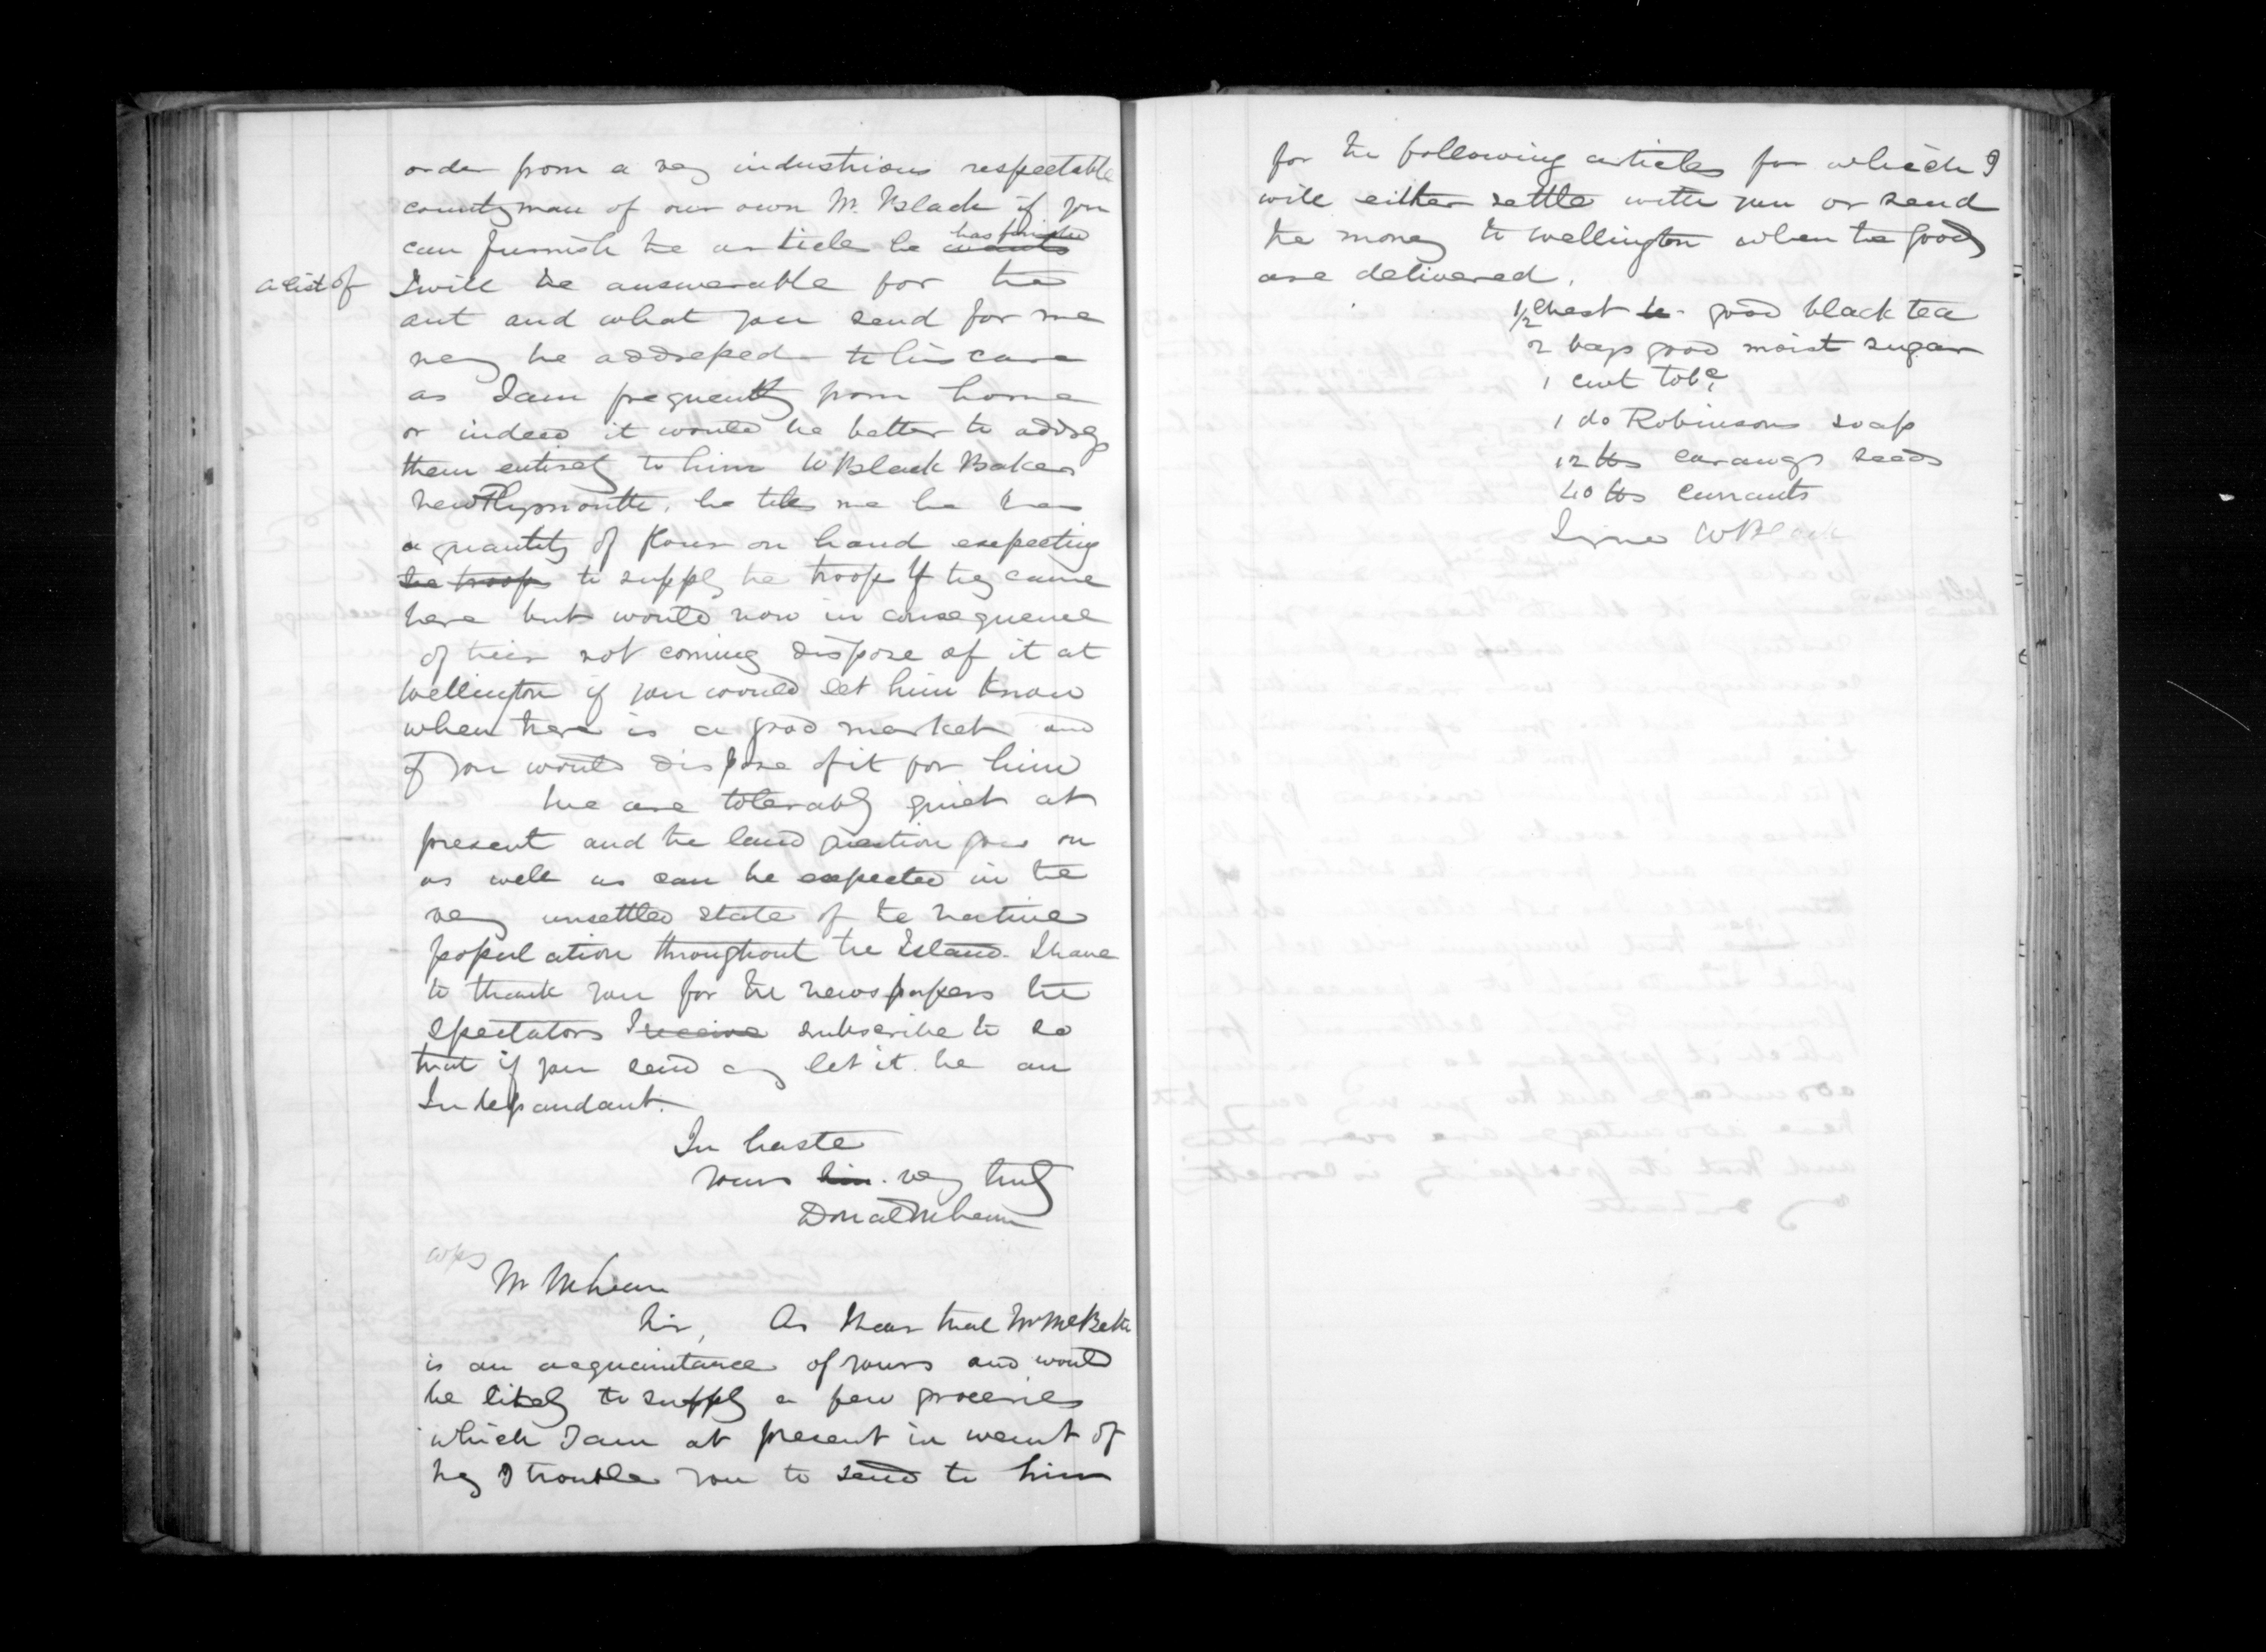 order from a very industrious respectable
countryman of our own Mr. Black if you
can furnish the article he wants has furnished
a list of I will be answerable for the
amt and what you send for me
may be addressed to his care
as I am frequently from home
or indeed it would be better to address
them entirely to him W Black Baker
New Plymouth, he tells me he has
a quantity of flour on hand expecting
the troops to supply the troops if they came
here but would now in consequence
of their not coming dispose of it at
Wellington if you would let him know
when there is a good market and
if you would dispose of it for him
We are tolerably quiet at
present and the land question goes on
as well as can be expected in the
very unsettled state of the native
population throughout the Island. I have
to thank you for the newspapers the
Spectators I receive subscribe to so
that if you send any let it be an
Independant.
In haste
yours sin. very truly
Donald McLean
copy
Mr McLean
Sir, As I hear that Mr McBeth
is an acquaintance of yours and would
be likely to supply a few groceries
which I am at present in want of
may I trouble you to send to him
for the following articles for which I
will either settle with you or send
the money to Wellington when the goods
are delivered.
1/2 chest good black tea
2 bags good moist sugar
1 cwt Tobco.
1 do Robinsons soap
12 lbs caraway seeds
40 lbs currants
Signed W Black